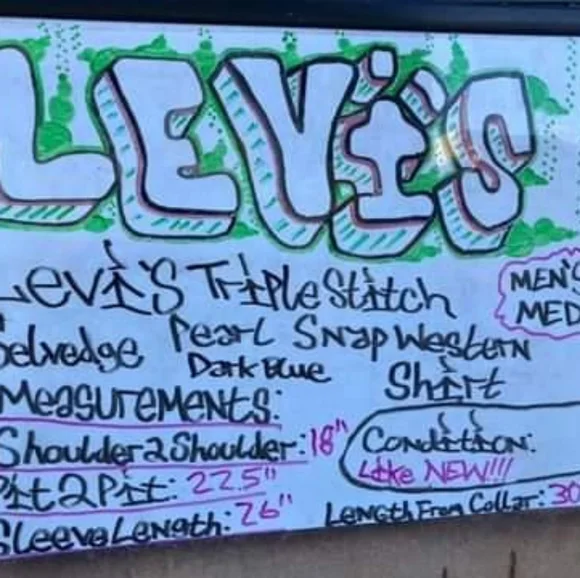 LEVi'S
Levi's Triple Stitch
Selvedge Pearl Snap Western
Dark Blue Shirt
MEN'S
MED
Measurements:
Shoulder2Shoulder: 18"
Pit2Pit: 22.5"
Sleeve Length: 26"
Condition:
Like NEW!!!
Length From Collar: 30